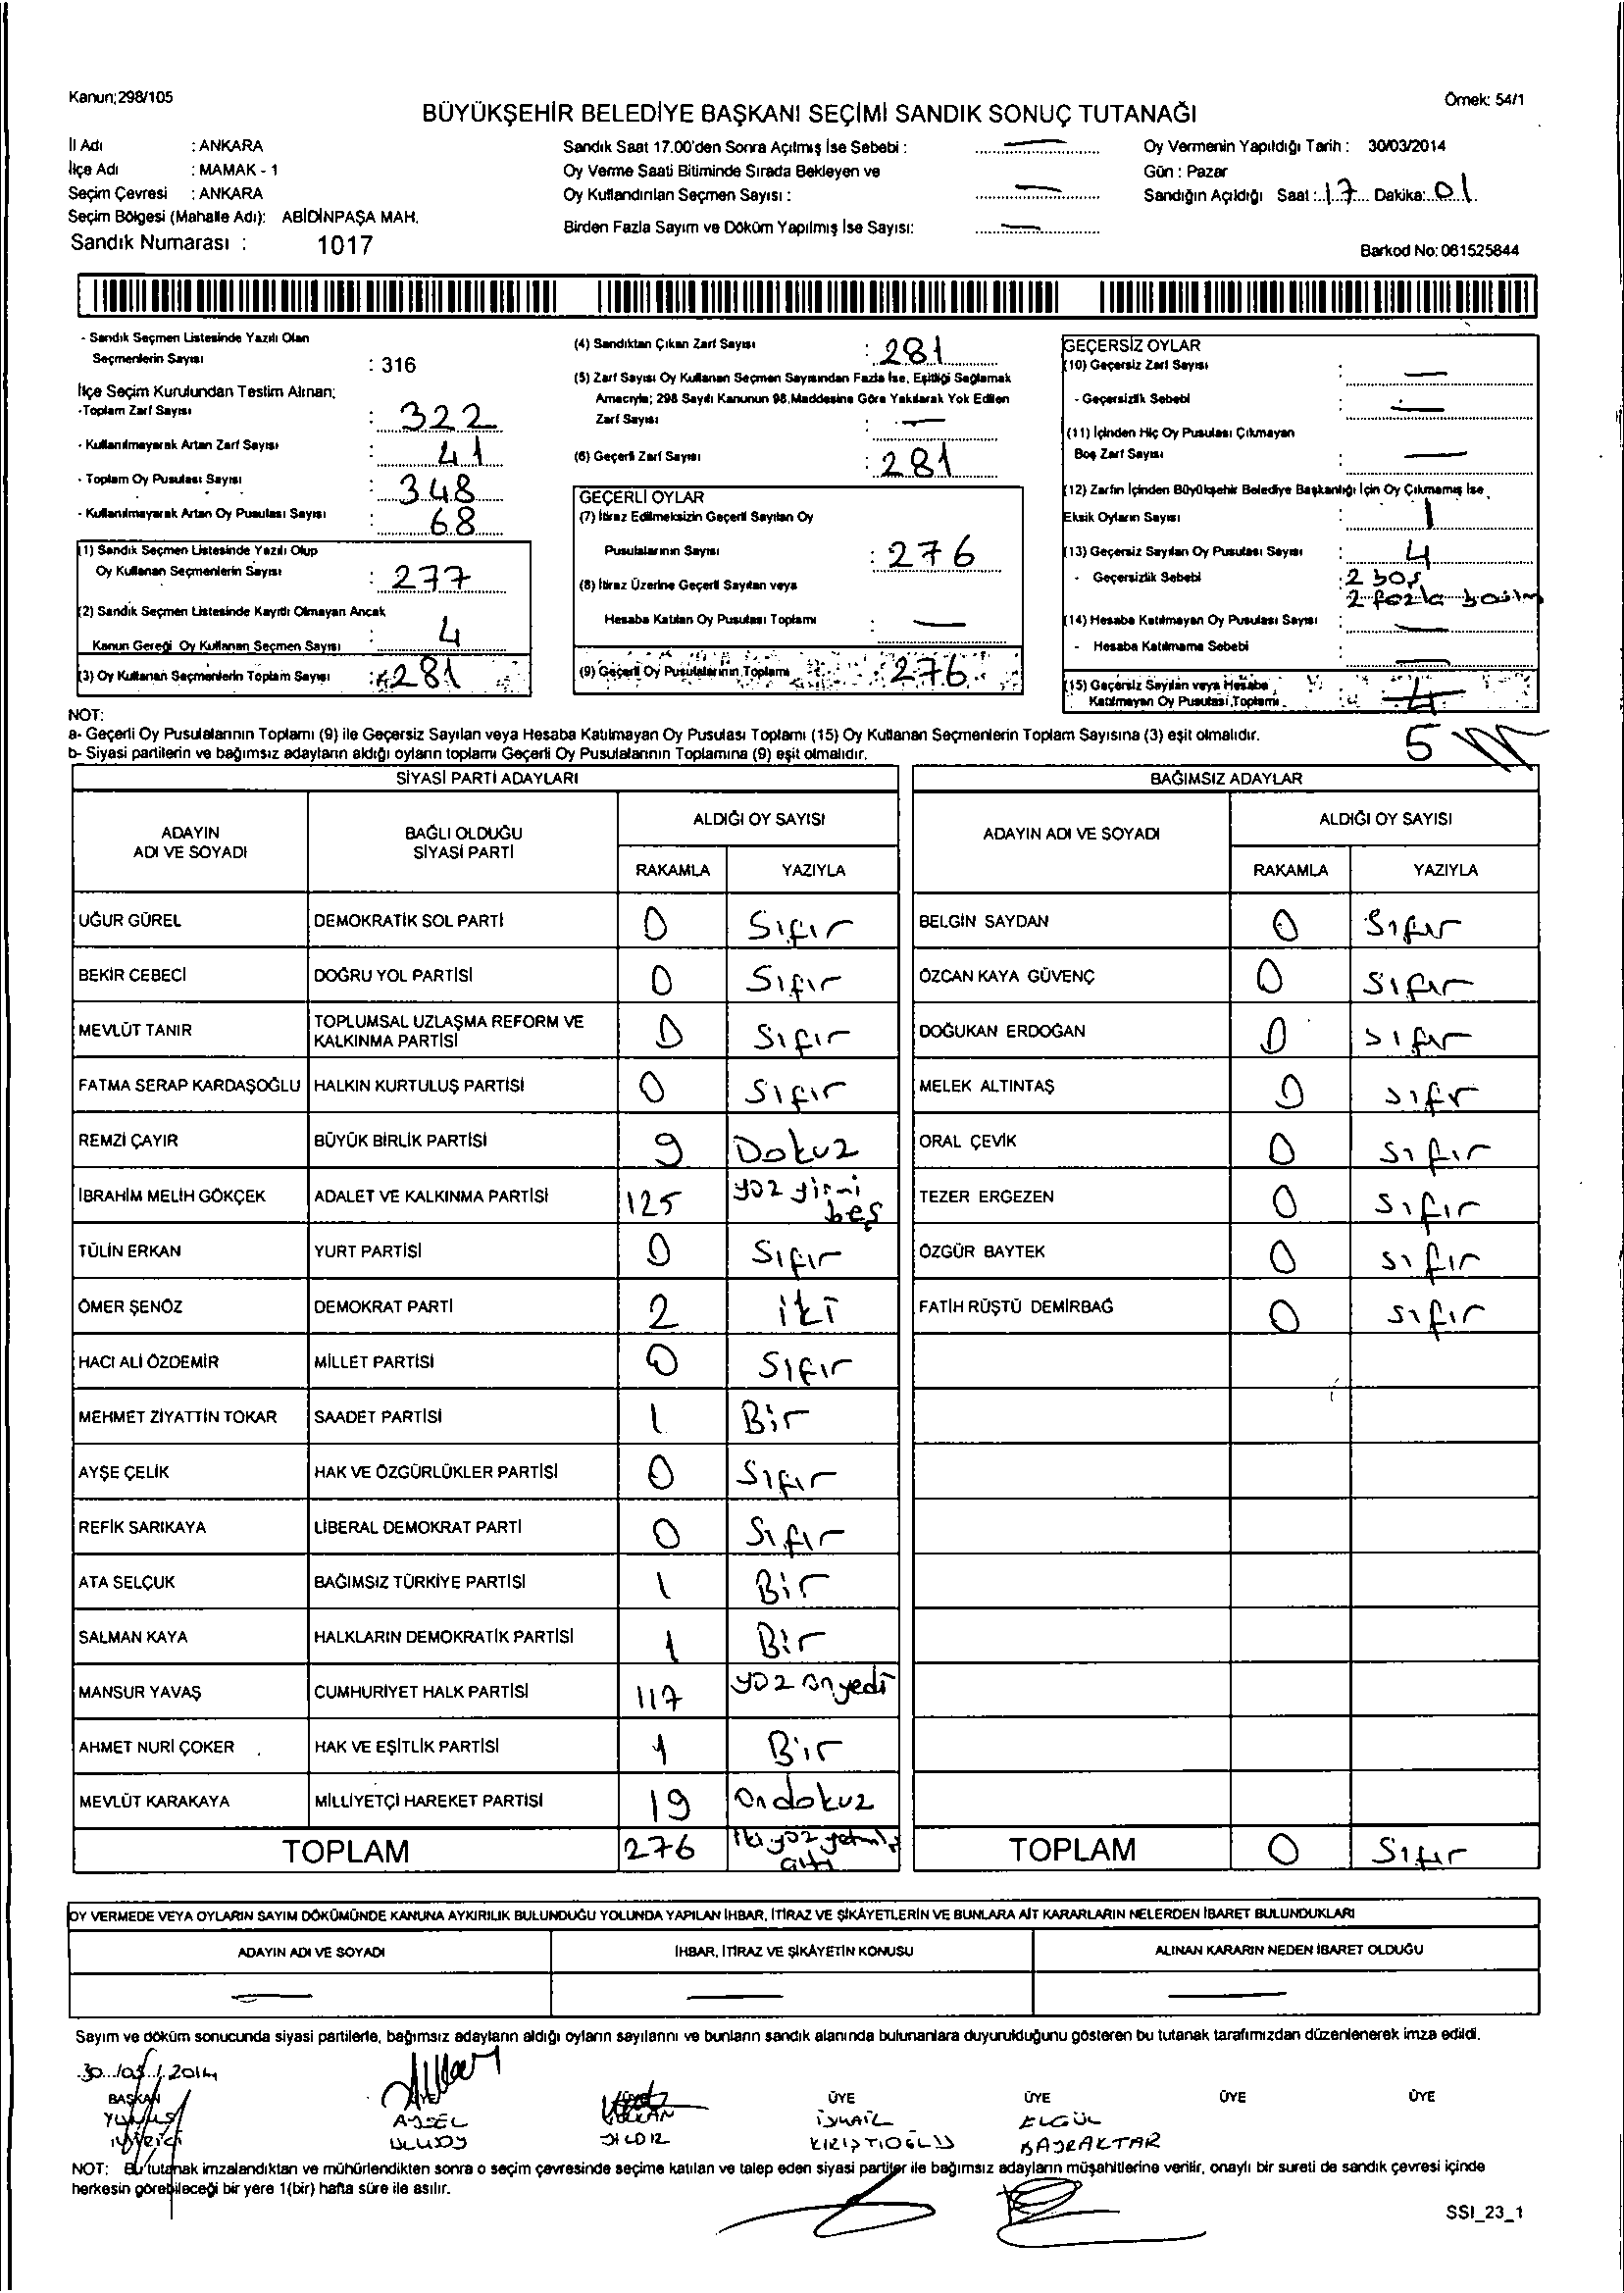 Kanun;298/105
Örnek: 54/1
BÜYÜKŞEHİR BELEDİYE BAŞKANI SEÇİMİ SANDIK SONUÇ TUTANAĞI
İl Adı : ANKARA
İlçe Adı : MAMAK - 1
Seçim Çevresi : ANKARA
Seçim Bölgesi (Mahalle Adı): ABİDİNPAŞA MAH.
Sandık Numarası : 1017
Sandık Saat 17.00'den Sonra Açılmış İse Sebebi : —
Oy Verme Saati Bitiminde Sırada Bekleyen ve
Oy Kullandırılan Seçmen Sayısı : —
Birden Fazla Sayım ve Döküm Yapılmış İse Sayısı: —
Oy Vermenin Yapıldığı Tarih : 30/03/2014
Gün : Pazar
Sandığın Açıldığı Saat : 17 Dakika: 01
Barkod No: 061525844
- Sandık Seçmen Listesinde Yazılı Olan
Seçmenlerin Sayısı : 316
İlçe Seçim Kurulundan Teslim Alınan;
-Toplam Zarf Sayısı : 322
- Kullanılmayarak Artan Zarf Sayısı : 41
- Toplam Oy Pusulası Sayısı : 348
- Kullanılmayarak Artan Oy Pusulası Sayısı : 68
(1) Sandık Seçmen Listesinde Yazılı Olup
Oy Kullanan Seçmenlerin Sayısı : 277
(2) Sandık Seçmen Listesinde Kayıtlı Olmayan Ancak
Kanun Gereği Oy Kullanan Seçmen Sayısı : 4
(3) Oy Kullanan Seçmenlerin Toplam Sayısı : 281
(4) Sandıktan Çıkan Zarf Sayısı : 281
(5) Zarf Sayısı Oy Kullanan Seçmen Sayısından Fazla İse, Eşitliği Sağlamak
Amacıyla; 298 Sayılı Kanunun 98.Maddesine Göre Yakılarak Yok Edilen
Zarf Sayısı : —
(6) Geçerli Zarf Sayısı : 281
GEÇERLİ OYLAR
(7) İtiraz Edilmeksizin Geçerli Sayılan Oy
Pusulalarının Sayısı : 276
(8) İtiraz Üzerine Geçerli Sayılan veya
Hesaba Katılan Oy Pusulası Toplamı : —
(9) Geçerli Oy Pusulalarının Toplamı : 276
GEÇERSİZ OYLAR
(10) Geçersiz Zarf Sayısı : —
- Geçersizlik Sebebi : —
(11) İçinden Hiç Oy Pusulası Çıkmayan
Boş Zarf Sayısı : —
(12) Zarfın İçinden Büyükşehir Belediye Başkanlığı İçin Oy Çıkmamış İse,
Eksik Oyların Sayısı : 1
(13) Geçersiz Sayılan Oy Pusulası Sayısı : 4
- Geçersizlik Sebebi : 2 boş
2 fazla basım
(14) Hesaba Katılmayan Oy Pusulası Sayısı : —
- Hesaba Katılmama Sebebi : —
(15) Geçersiz Sayılan veya Hesaba
Katılmayan Oy Pusulası Toplamı : 4
5
NOT:
a- Geçerli Oy Pusulalarının Toplamı (9) ile Geçersiz Sayılan veya Hesaba Katılmayan Oy Pusulası Toplamı (15) Oy Kullanan Seçmenlerin Toplam Sayısına (3) eşit olmalıdır.
b- Siyasi partilerin ve bağımsız adayların aldığı oyların toplamı Geçerli Oy Pusulalarının Toplamına (9) eşit olmalıdır.
SİYASİ PARTİ ADAYLARI
ADAYIN ADI VE SOYADI BAĞLI OLDUĞU SİYASİ PARTİ ALDIĞI OY SAYISI
RAKAMLA YAZIYLA
UĞUR GÜREL DEMOKRATİK SOL PARTİ 0 Sıfır
BEKİR CEBECİ DOĞRU YOL PARTİSİ 0 Sıfır
MEVLÜT TANIR TOPLUMSAL UZLAŞMA REFORM VE KALKINMA PARTİSİ 0 Sıfır
FATMA SERAP KARDAŞOĞLU HALKIN KURTULUŞ PARTİSİ 0 Sıfır
REMZİ ÇAYIR BÜYÜK BİRLİK PARTİSİ 9 Dokuz
İBRAHİM MELİH GÖKÇEK ADALET VE KALKINMA PARTİSİ 125 yüz yirmi beş
TÜLİN ERKAN YURT PARTİSİ 0 Sıfır
ÖMER ŞENÖZ DEMOKRAT PARTİ 2 iki
HACI ALİ ÖZDEMİR MİLLET PARTİSİ 0 Sıfır
MEHMET ZİYATTİN TOKAR SAADET PARTİSİ 1 Bir
AYŞE ÇELİK HAK VE ÖZGÜRLÜKLER PARTİSİ 0 Sıfır
REFİK SARIKAYA LİBERAL DEMOKRAT PARTİ 0 Sıfır
ATA SELÇUK BAĞIMSIZ TÜRKİYE PARTİSİ 1 Bir
SALMAN KAYA HALKLARIN DEMOKRATİK PARTİSİ 1 Bir
MANSUR YAVAŞ CUMHURİYET HALK PARTİSİ 117 yüz onyedi
AHMET NURİ ÇOKER HAK VE EŞİTLİK PARTİSİ 1 Bir
MEVLÜT KARAKAYA MİLLİYETÇİ HAREKET PARTİSİ 19 Ondokuz
TOPLAM 276 iki yüz yetmiş altı
BAĞIMSIZ ADAYLAR
ADAYIN ADI VE SOYADI ALDIĞI OY SAYISI
RAKAMLA YAZIYLA
BELGİN SAYDAN 0 Sıfır
ÖZCAN KAYA GÜVENÇ 0 Sıfır
DOĞUKAN ERDOĞAN 0 Sıfır
MELEK ALTINTAŞ 0 sıfır
ORAL ÇEVİK 0 sıfır
TEZER ERGEZEN 0 sıfır
ÖZGÜR BAYTEK 0 sıfır
FATİH RÜŞTÜ DEMİRBAĞ 0 sıfır
TOPLAM 0 Sıfır
OY VERMEDE VEYA OYLARIN SAYIM DÖKÜMÜNDE KANUNA AYKIRILIK BULUNDUĞU YOLUNDA YAPILAN İHBAR, İTİRAZ VE ŞİKÂYETLERİN VE BUNLARA AİT KARARLARIN NELERDEN İBARET BULUNDUKLARI
ADAYIN ADI VE SOYADI İHBAR, İTİRAZ VE ŞİKÂYETİN KONUSU ALINAN KARARIN NEDEN İBARET OLDUĞU
— — —
Sayım ve döküm sonucunda siyasi partilerle, bağımsız adayların aldığı oyların sayılarını ve bunların sandık alanında bulunanlara duyurulduğunu gösteren bu tutanak tarafımızdan düzenlenerek imza edildi.
30/03/2014
BAŞKAN ÜYE ÜYE ÜYE ÜYE ÜYE ÜYE
YUNUS AYSEL İSMAİL ELGÜL
ULUSOY YILDIZ KIRIŞTIOĞLU BAYRAKTAR
NOT: Bu tutanak imzalandıktan ve mühürlendikten sonra o seçim çevresinde seçime katılan ve talep eden siyasi partiler ile bağımsız adayların müşahitlerine verilir, onaylı bir sureti de sandık çevresi içinde
herkesin görebileceği bir yere 1(bir) hafta süre ile asılır.
SSI_23_1